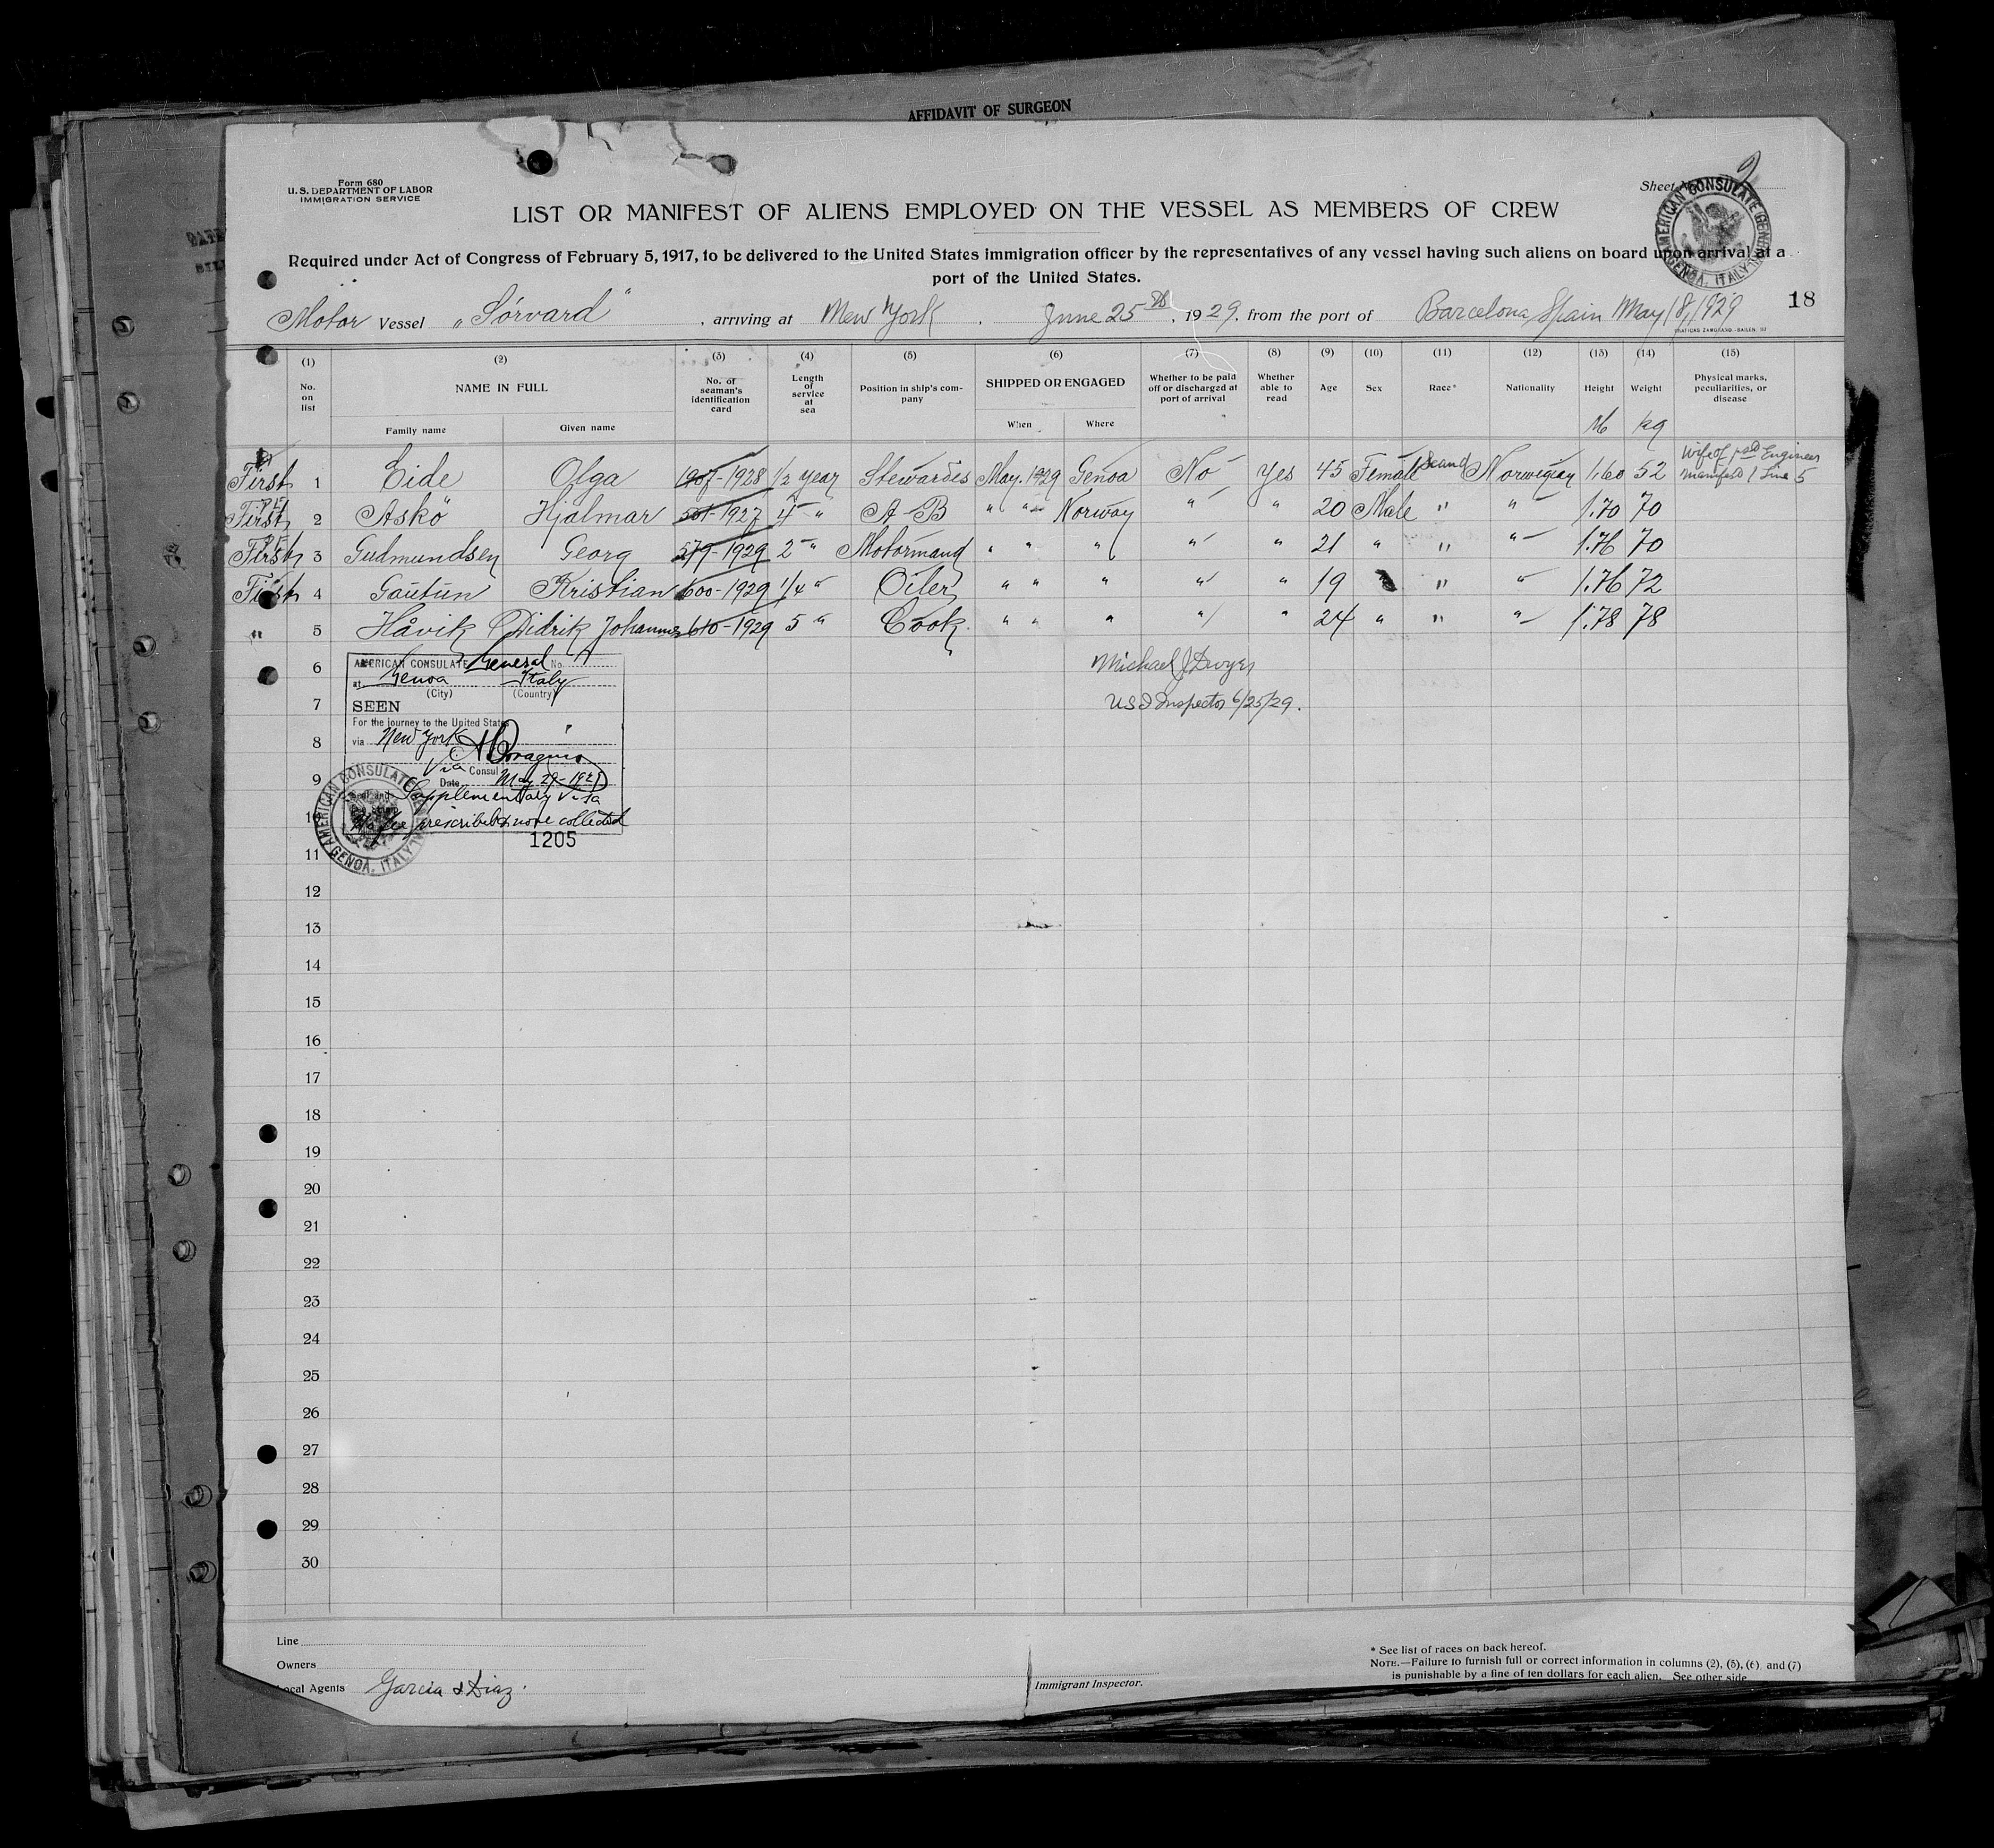 AFFIDAVIT OF SURGEON
Form 680
U. S. DEPARTMENT OF LABOR
IMMIGRATION SERVICE
Sheet No. 2
LIST OR MANIFEST OF ALIENS EMPLOYED ON THE VESSEL AS MEMBERS OF CREW
Required under Act of Congress of February 5, 1917, to be delivered to the United States immigration officer by the representatives of any vessel having such aliens on board upon arrival at a
port of the United States.
AMERICAN CONSULATE GENERAL GENOA, ITALY
Motor Vessel „Sörvard“, arriving at New York, June 25th, 1929, from the port of Barcelona Spain May 18, 1929
18
(1) (2) (3) (4) (5) (6) (7) (8) (9) (10) (11) (12) (13) (14) (15)
No. on list NAME IN FULL No. of seaman's identification card Length of service at sea Position in ship's company SHIPPED OR ENGAGED Whether to be paid off or discharged at port of arrival Whether able to read Age Sex Race* Nationality Height Weight Physical marks, peculiarities, or disease
Family name Given name When Where M kg
First 1 Eide Olga 1907-1928 1/2 year Stewardes May. 1929 Genoa No Yes 45 Female Scand Norwegian 1.60 52 Wife of Engineer manifest 1 Line 5
First 2 Askö Hjalmar 501-1927 4 " A B " " Norway " " 20 Male " " 1.70 70
First 3 Gudmundsen Georg 579-1929 2 " Motormand " " " " " 21 " " " 1.76 70
First 4 Gautun Kristian 600-1929 1/4 " Oiler " " " " " 19 " " 1.76 72
" 5 Håvik Didrik Johannes 610-1929 5 " Cook " " " " " 24 " " " 1.78 78
6 Michael J Dwyer
7 US I Inspector 6/25/29.
AMERICAN CONSULATE General No.
at Genoa Italy
(City) (Country)
SEEN
For the journey to the United States
via New York
Consul
Date May 29-1929
Supplementary Visa
No fee prescribed & none collected
1205
AMERICAN CONSULATE GENERAL GENOA, ITALY
8
9
10
11
12
13
14
15
16
17
18
19
20
21
22
23
24
25
26
27
28
29
30
Line
Owners
Local Agents Garcia & Diaz.
Immigrant Inspector.
* See list of races on back hereof.
NOTE.—Failure to furnish full or correct information in columns (2), (5), (6) and (7)
is punishable by a fine of ten dollars for each alien. See other side.